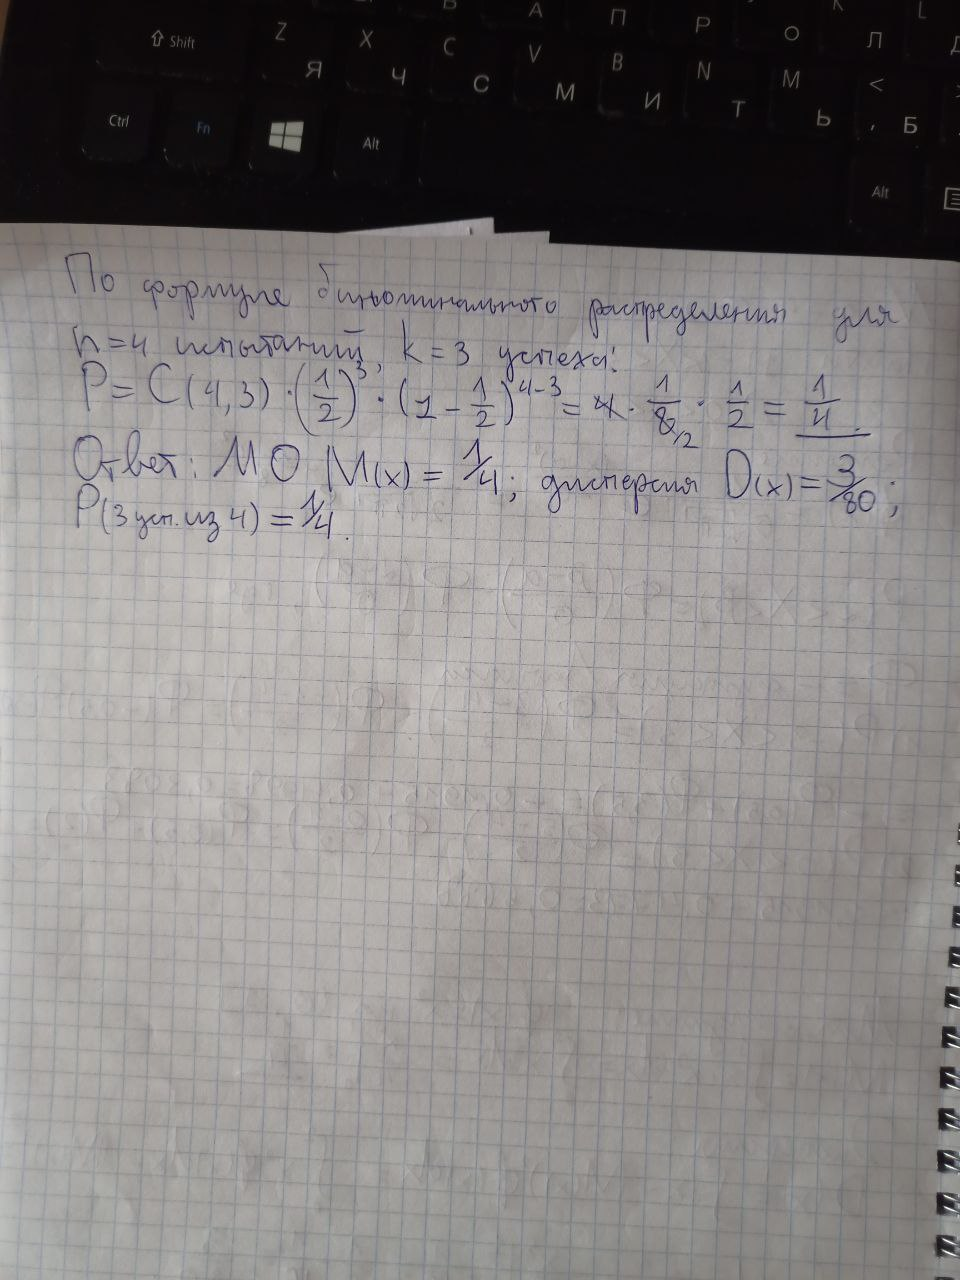 В А П Р О Л К L Д
Shift Z Я X Ч C С V М B И N Т M Ь < , Б
Ctrl Fn Alt Alt
По формуле биньоминального распределения для
n=4 испытаний, k=3 успеха:
P= C(4,3)·(1/2)^3·(1-1/2)^4-3=4·1/8/2·1/2=1/4.
Ответ: МО M(x)=1/4; дисперсия D(x)=3/80;
P(3 усп. из 4)=1/4.